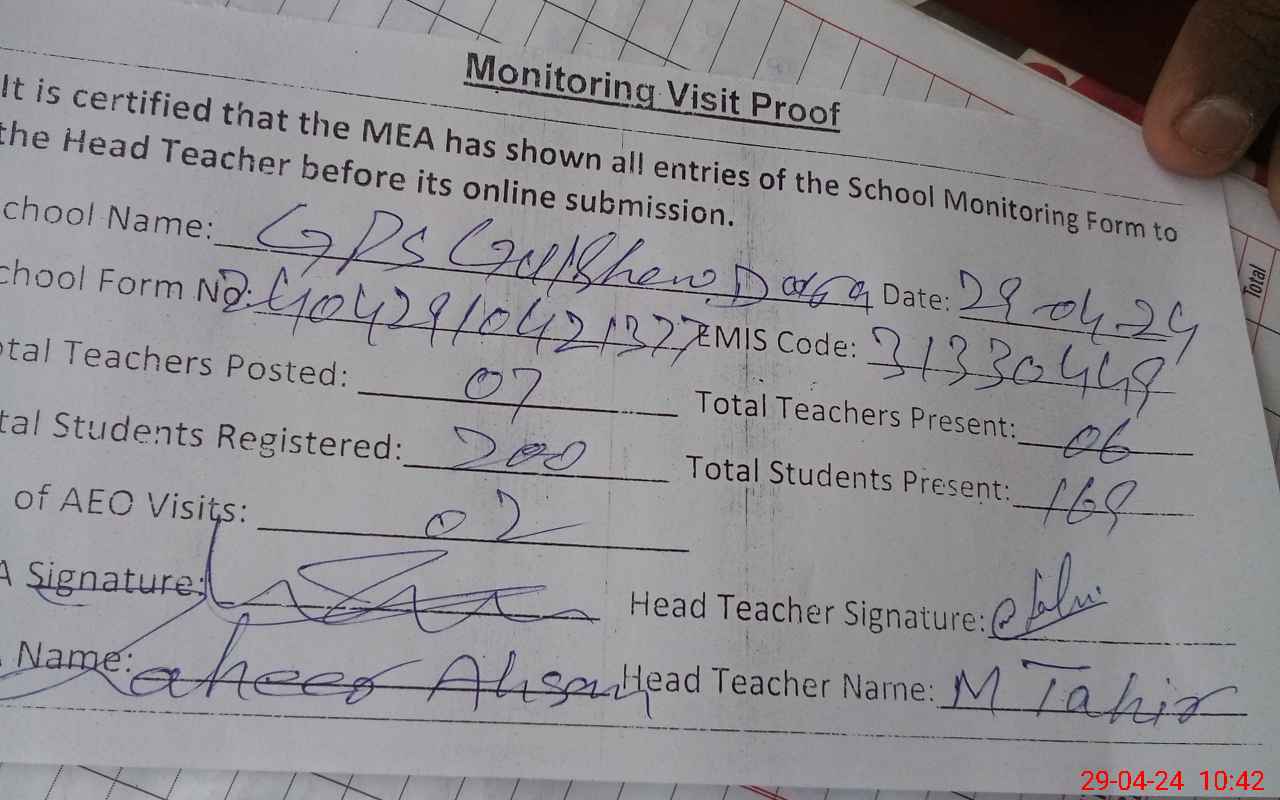 Monitoring Visit Proof
It is certified that the MEA has shown all entries of the School Monitoring Form to
the Head Teacher before its online submission.
chool Name: GPS Gulshan Date: 29-04-24
chool Form No: 24042910421377 EMIS Code: 31330449
otal Teachers Posted: 07 Total Teachers Present: 06
tal Students Registered: 200 Total Students Present: 169
of AEO Visits: 02
A Signature: Head Teacher Signature:
Name: Zaheer Ahsan Head Teacher Name: M Tahir
Total
29-04-24 10:42